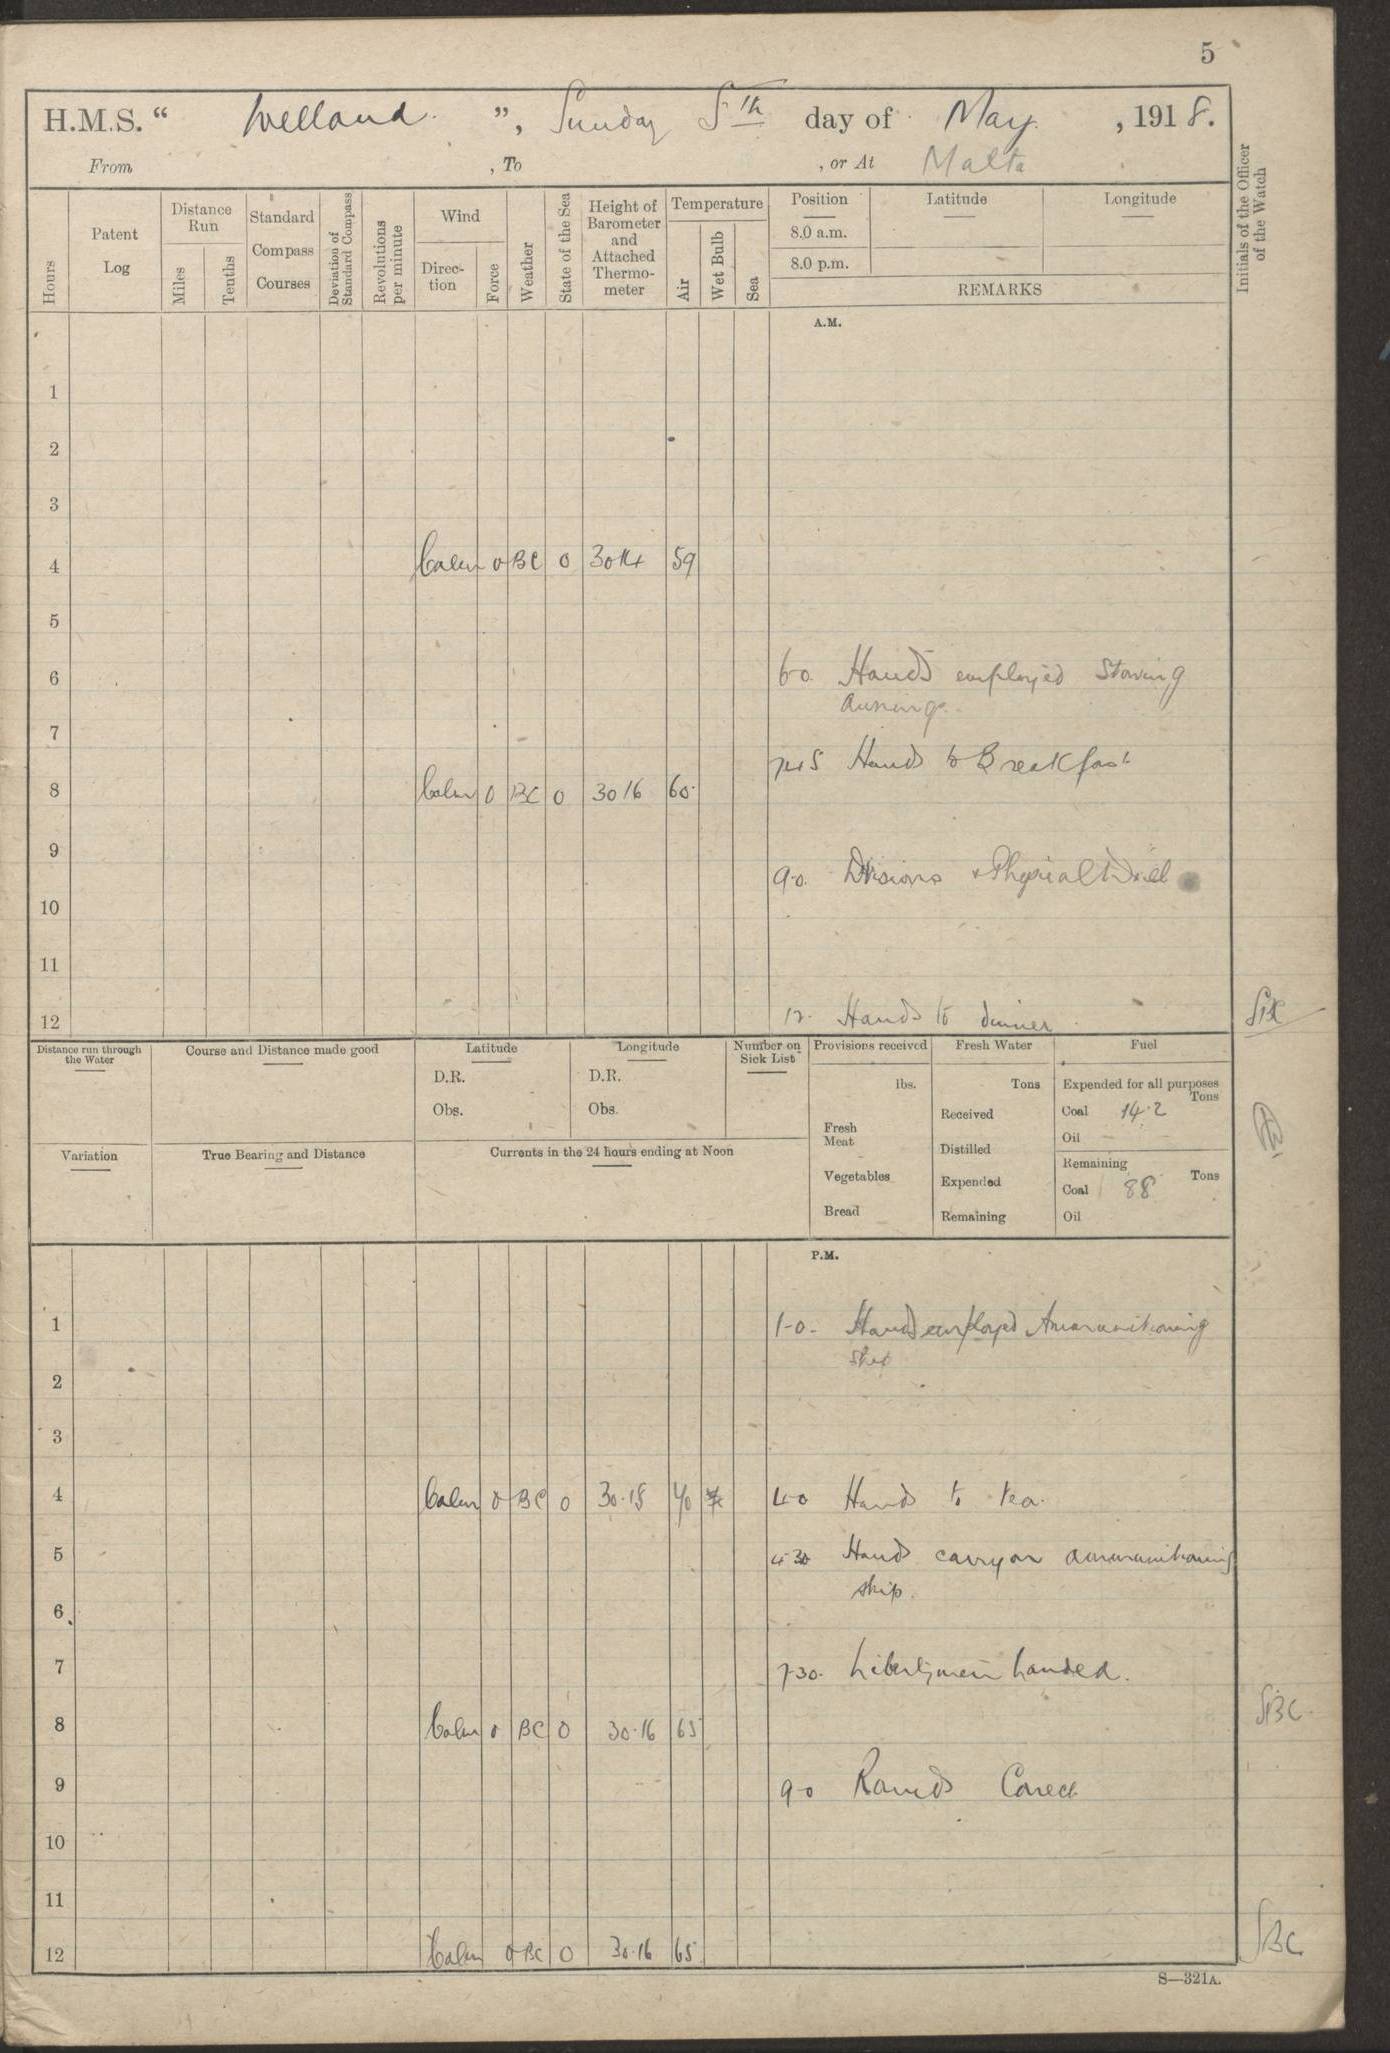 5
H.M.S. “ Welland ”, Sunday 5th day of May, 1918.
From , To , or At Malta
Hours
Patent Log
Distance Run
Miles
Tenths
Standard Compass Courses
Deviation of Standard Compass
Revolutions per minute
Wind
Direction
Force
Weather
State of the Sea
Height of Barometer and Attached Thermometer
Temperature
Air
Wet Bulb
Sea
Position
8.0 a.m.
8.0 p.m.
Latitude
Longitude
REMARKS
Initials of the Officer of the Watch
A.M.
1
2
3
4 Calm 0 BC 0 3014 59
5
6 6-0. Hands employed stowing
awnings.
7
745 Hands to Breakfast
8 Calm 0 BC 0 3016 60
9
9-0. Divisions & Physical Drill
10
11
12 12. Hands to dinner
Distance run through the Water
Course and Distance made good
Latitude
D.R.
Obs.
Longitude
D.R.
Obs.
Number on Sick List
Provisions received
lbs.
Fresh Meat
Vegetables
Bread
Fresh Water
Tons
Received
Distilled
Expended
Remaining
Fuel
Expended for all purposes
Tons
Coal 14.2
Oil
Remaining
Tons
Coal 88
Oil
Variation
True Bearing and Distance
Currents in the 24 hours ending at Noon
P.M.
1 1-0. Hands employed Ammunitioning
ship
2
3
4 Calm 0 BC 0 30.15 70 4-0 Hands to tea.
5 4 30 Hands carry on ammunitioning
ship.
6
7 7-30. Libertymen landed.
8 Calm 0 BC 0 30.16 65 SBC.
9 9-0 Rounds Corect
10
11
12 Calm 0 BC 0 30.16 65 SBC
S—321A.